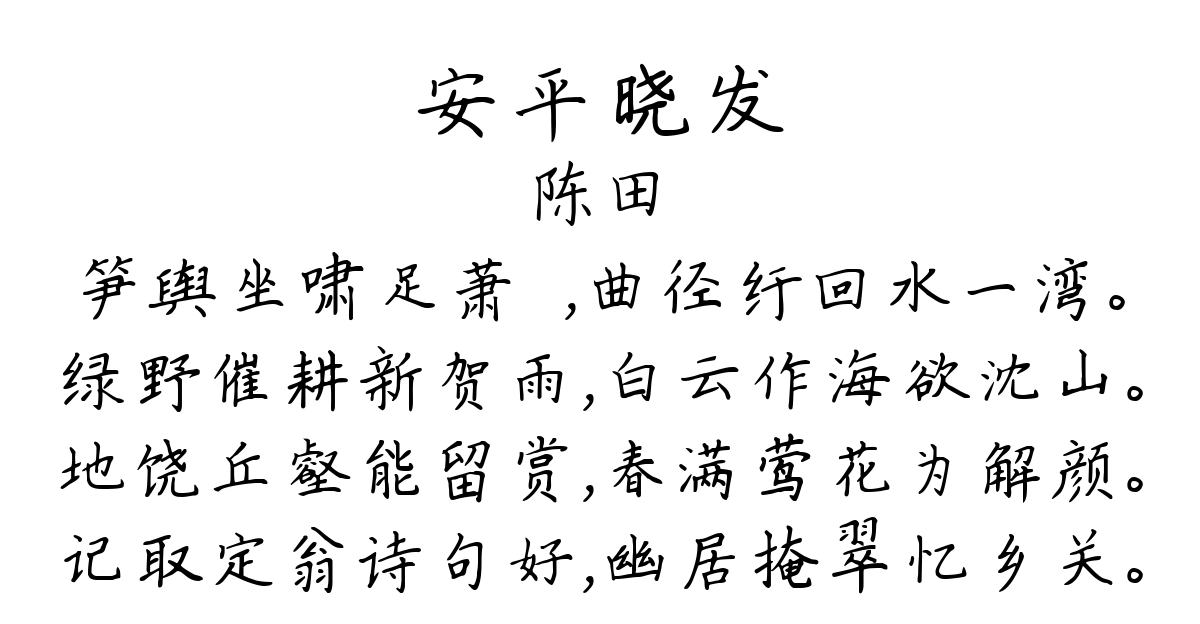 安平晓发
陈田
笋舆坐啸足萧 ,曲径纡回水一湾。
绿野催耕新贺雨,白云作海欲沈山。
地饶丘壑能留赏,春满莺花为解颜。
记取定翁诗句好,幽居掩翠忆乡关。